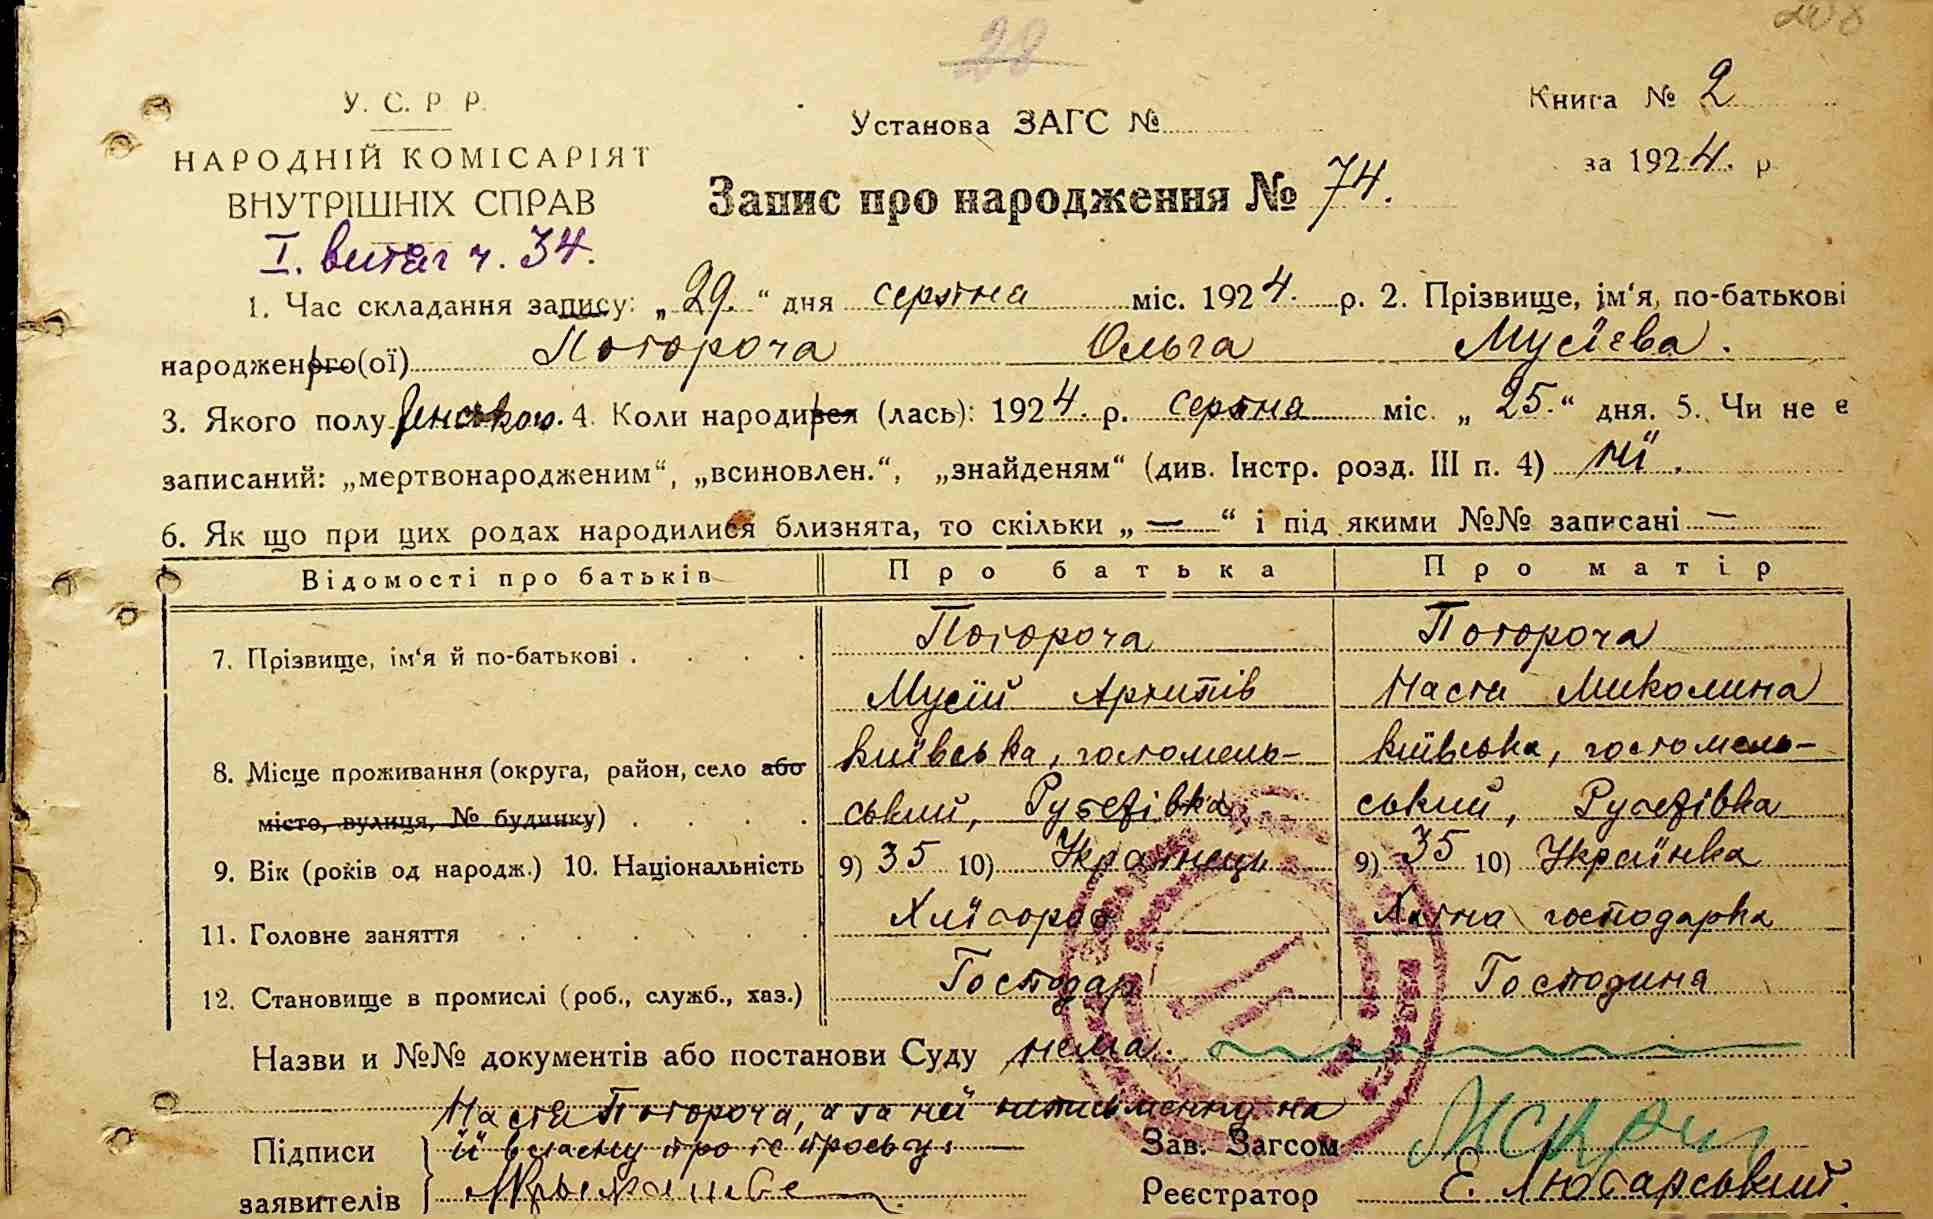 28
208
У. С. Р. Р.
Установа ЗАГС №
Книга № 2
НАРОДНІЙ КОМІСАРІЯТ
за 1924. р.
ВНУТРІШНІХ СПРАВ
Запис про народження № 74.
I. витяг ч. 34.
1. Час складання запису: „29.“ дня серпня міс. 1924. р. 2. Прізвище, ім‘я, по-батькові
народженого(ої) Погороча Ольга Мусієва.
3. Якого полу Женсокого. 4. Коли народився (лась): 1924. р. серпня міс. „25.“ дня. 5. Чи не є
записаний: „мертвонародженим“, „всиновлен.“, „знайденям“ (див. Інстр. розд. III п. 4) ні.
6. Як що при цих родах народилися близнята, то скільки „—“ і під якими №№ записані —
Відомості про батьків Про батька Про матір
7. Прізвище, ім‘я й по-батькові . Погороча Погороча
Мусій Архипів Настя Миколина
8. Місце проживання (округа, район, село або Київська, гостомель- Київська, гостомель-
місто, вулиця, № будинку) ський, Рубежівка ський, Рубежівка
9. Вік (років од народж.) 10. Національність 9) 35 10) Українець 9) 35 10) Українка
11. Головне заняття Хлібороб Хатна господарка
12. Становище в промислі (роб., служб., хаз.) Господар Господиня
Назви и №№ документів або постанови Суду нема.
Настя Погороча, а за неї неписьменну на
Підписи її власну про те просьбу.
Зав. Загсом
заявителів
Реєстратор Є. Любарський